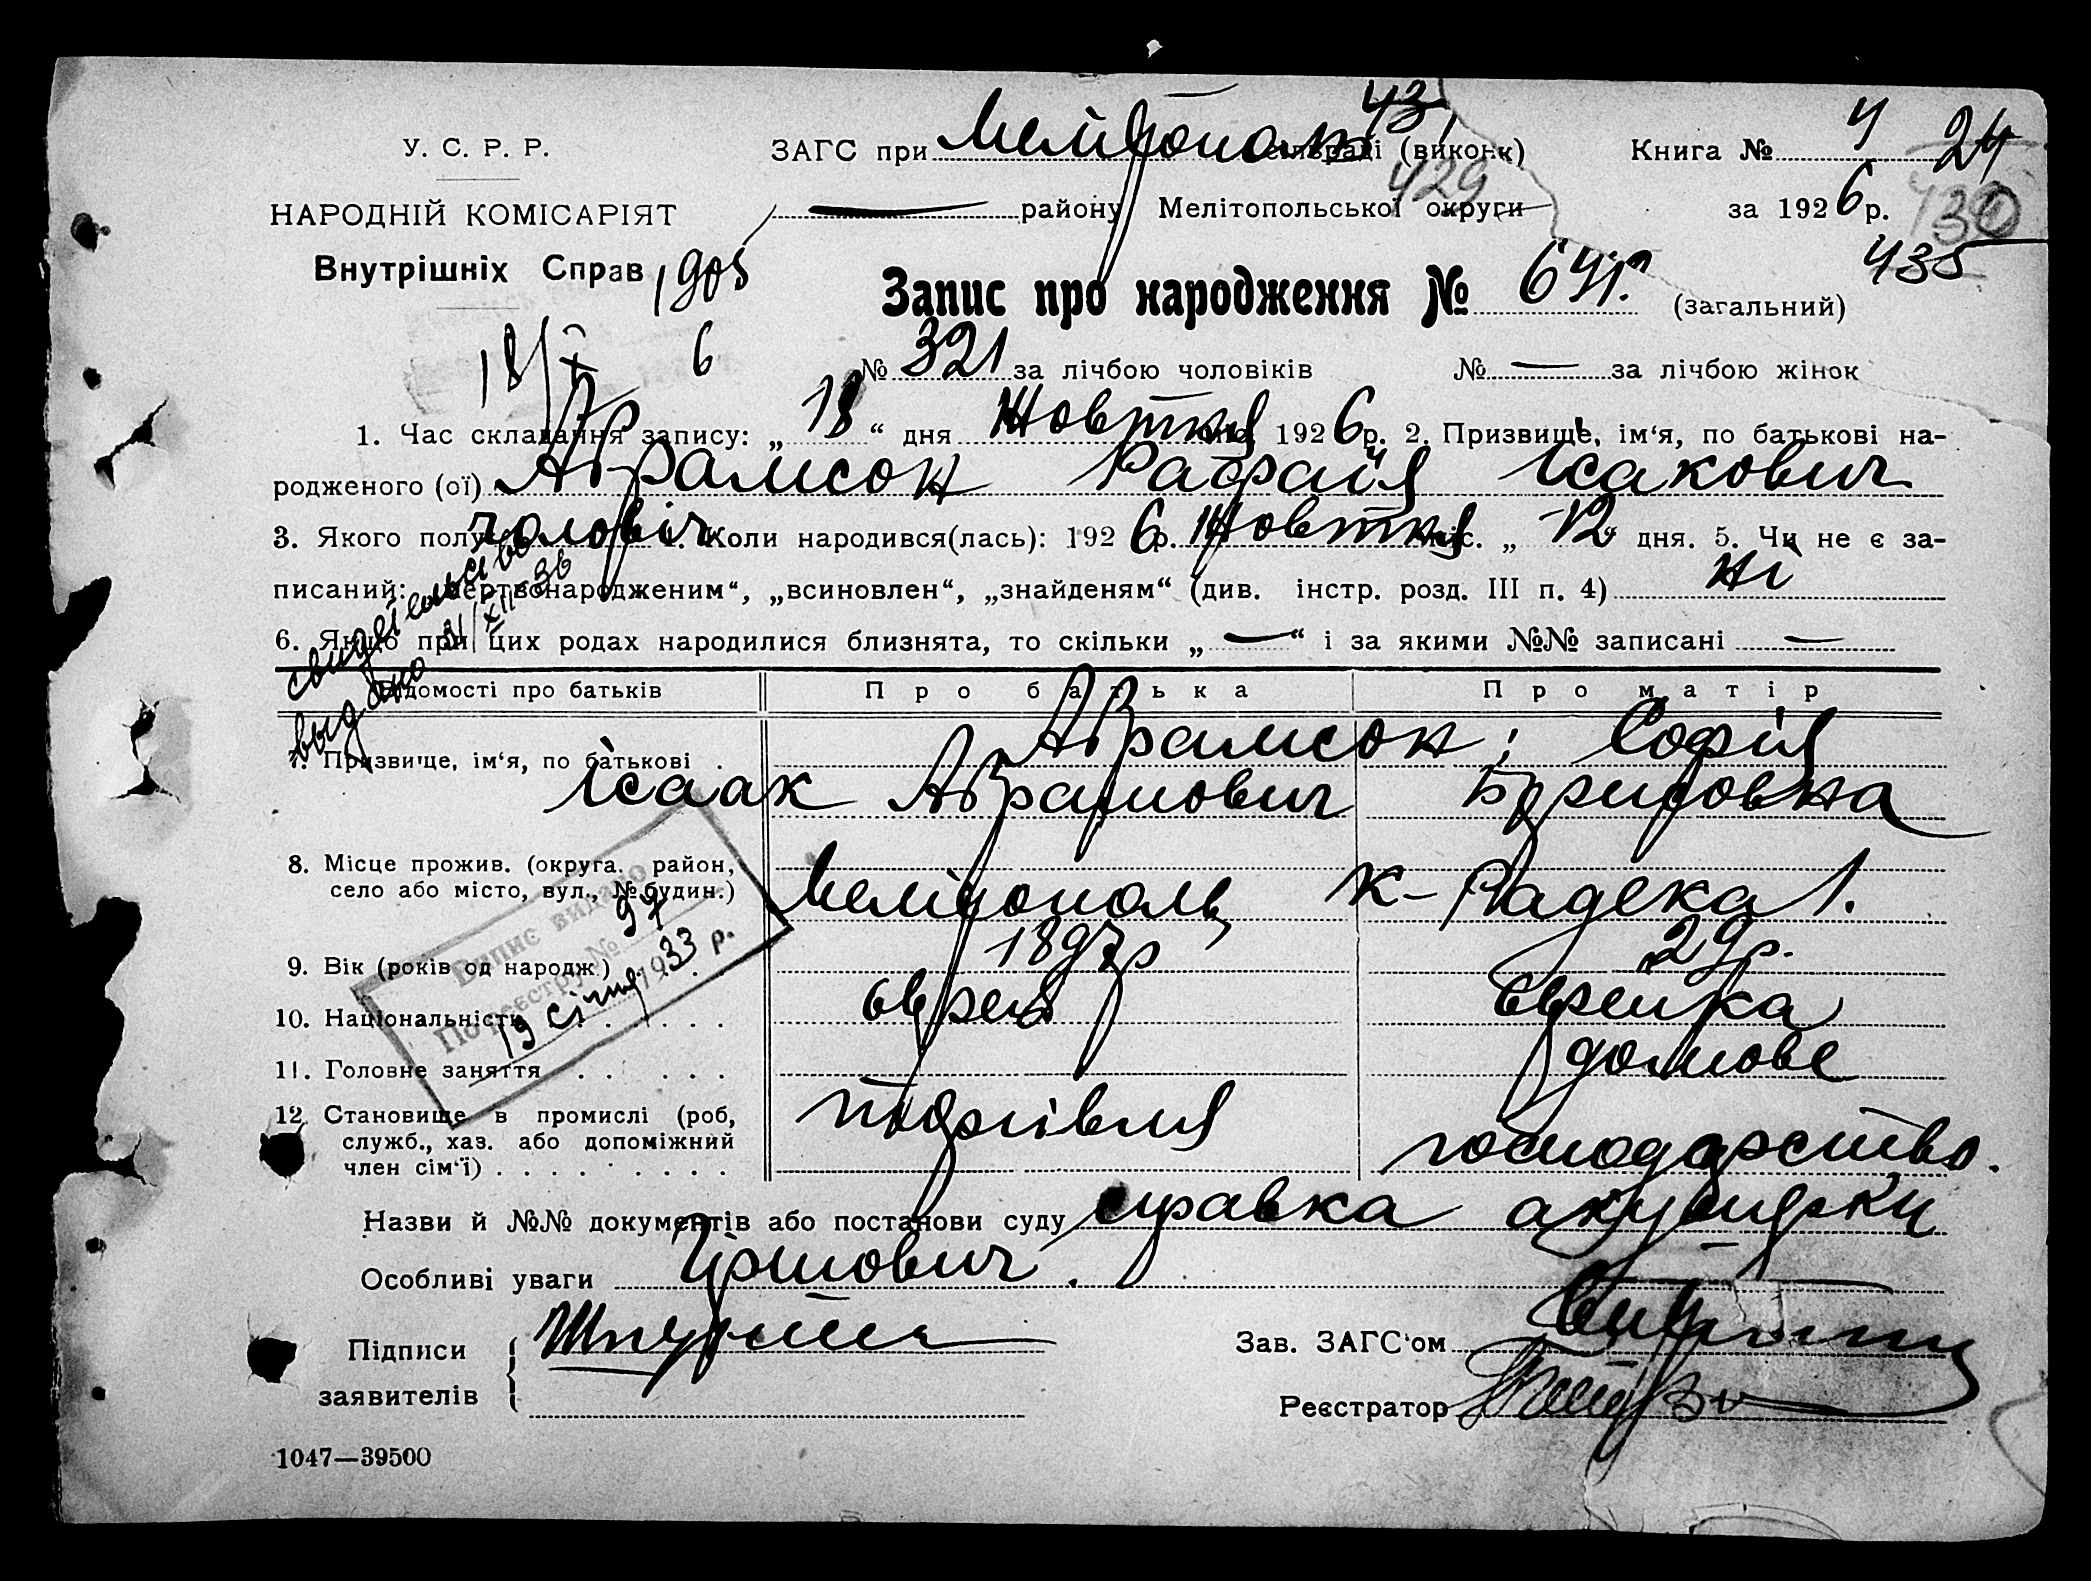 431
У. С. Р. Р.
ЗАГС при Мелітополь сільраді (виконк)
Книга № 4 24
429
НАРОДНІЙ КОМІСАРІЯТ
— району Мелітопольської округи
за 1926 р. 430
Внутрішніх Справ 1905
435
Запис про народження № 641. (загальний)
18/X 6
№ 321 за лічбою чоловіків № — за лічбою жінок
1. Час складання запису: „ 18 “ дня Жовтня 1926 р. 2. Призвище, ім‘я, по батькові на-
родженого (ої) Абрамсон Рафаїл Ісакович
3. Якого полу чоловіч. 4. Коли народився(лась): 1926 р. Жовтня міс. „ 12 “ дня. 5. Чи не є за-
писаний: „мертвонародженим“, „всиновлен“, „знайденям“ (див. інстр. розд. III п. 4) ні
6. Якщо при цих родах народилися близнята, то скільки „ — “ і за якими №№ записані —
свидетельство
выдано 31/XII 36
Відомості про батьків Про батька Про матір
7. Призвище, ім‘я, по батькові .
Абрамсон; Софія
Ісаак Абрамович
8. Місце прожив. (округа, район,
село або місто, вул., № будин.)
Мелітополь К-Радека 1.
Випис видано
По реєстру № 97
19 січня 1933 р.
9. Вік (років од народж.) . . 1897р 29р.
10. Національність . . . . . еврей еврейка
11. Головне заняття . . . . . домове
12. Становище в промислі (роб,
служб., хаз. або допоміжний
член сім‘ї) . . . . . . . . .
торгівля господарство.
Назви й №№ документів або постанови суду справка акушерки
Особливі уваги Гіршович.
Підписи
заявителів
Зав. ЗАГС‘ом
Реєстратор
1047—39500